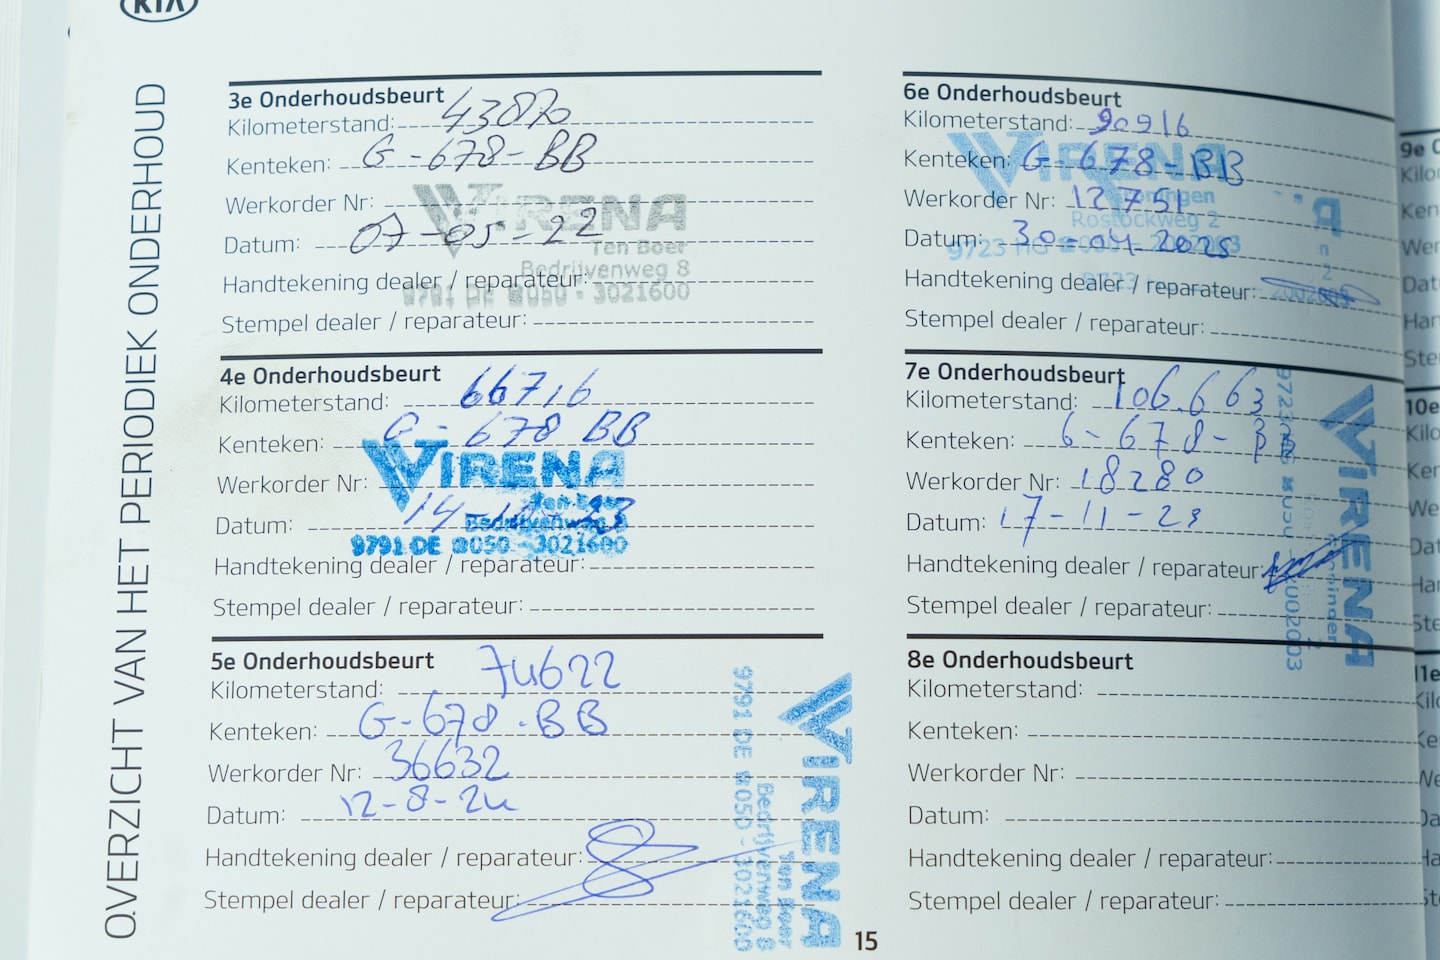 KIA
OVERZICHT VAN HET PERIODIEK ONDERHOUD
3e Onderhoudsbeurt
Kilometerstand: 43870
Kenteken: G-678-BB
Werkorder Nr:
Datum: 07-05-22
Handtekening dealer / reparateur:
Stempel dealer / reparateur:
VIRENA
Ten Boer
Bedrijvenweg 8
9791 DE ☎050 - 3021600
4e Onderhoudsbeurt
Kilometerstand: 66716
Kenteken: G-678 BB
Werkorder Nr:
Datum: 14
Handtekening dealer / reparateur:
Stempel dealer / reparateur:
VIRENA
Ten Boer
Bedrijvenweg 8
9791 DE ☎050 - 3021600
5e Onderhoudsbeurt
Kilometerstand: 74622
Kenteken: G-678-BB
Werkorder Nr: 36632
Datum: 12-8-24
Handtekening dealer / reparateur:
Stempel dealer / reparateur:
VIRENA
Ten Boer
Bedrijvenweg 8
9791 DE ☎050 - 3021600
6e Onderhoudsbeurt
Kilometerstand: 90916
Kenteken: G-678-BB
Werkorder Nr: 12751
Datum: 30-04-2025
Handtekening dealer / reparateur:
Stempel dealer / reparateur:
VIRENA
Rostockweg 2
9723
7e Onderhoudsbeurt
Kilometerstand: 106.663
Kenteken: G-678-BB
Werkorder Nr: 18280
Datum: 17-11-25
Handtekening dealer / reparateur:
Stempel dealer / reparateur:
VIRENA
8e Onderhoudsbeurt
Kilometerstand:
Kenteken:
Werkorder Nr:
Datum:
Handtekening dealer / reparateur:
Stempel dealer / reparateur:
15
9e
10e
11e